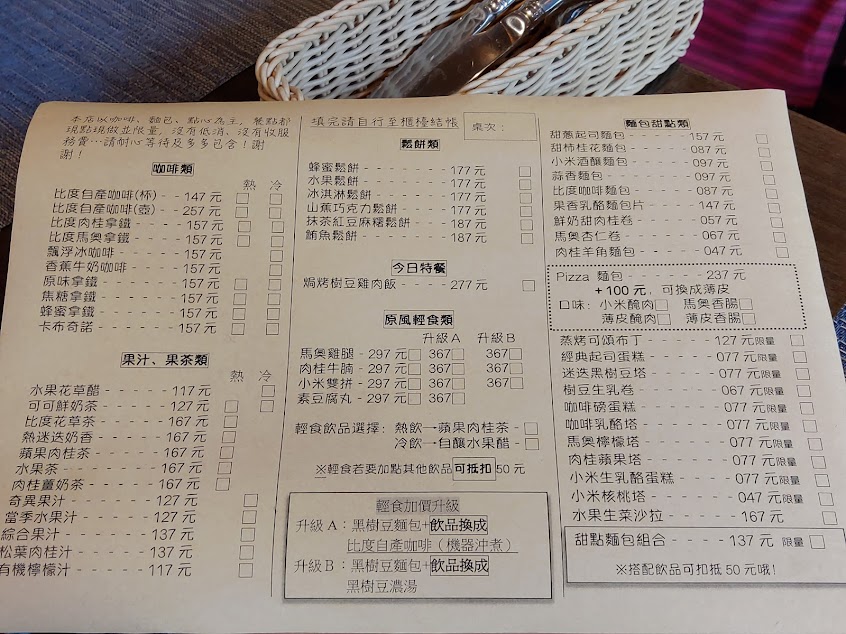 本店以咖啡、麵包、點心為主，餐點都
現點現做並限量，沒有低消、沒有收服
務費…請耐心等待及多多包含！謝
謝！
咖啡類
熱 冷
比度自產咖啡(杯) - - 147 元 □ □
比度自產咖啡(壺) - - 257 元 □ □
比度肉桂拿鐵 - - - - - 157 元 □ □
比度馬奧拿鐵 - - - - - 157 元 □ □
飄浮冰咖啡 - - - - - - 157 元 □
香蕉牛奶咖啡 - - - - - 157 元 □
原味拿鐵 - - - - - - - 157 元 □ □
焦糖拿鐵 - - - - - - - 157 元 □ □
蜂蜜拿鐵 - - - - - - - 157 元 □ □
卡布奇諾 - - - - - - - 157 元 □ □
果汁、果茶類
熱 冷
水果花草醋 - - - - - - 117 元 □
可可鮮奶茶 - - - - - - 127 元 □ □
比度花草茶 - - - - - - 167 元 □
熱迷迭奶香 - - - - - - 167 元 □
蘋果肉桂茶 - - - - - - 167 元 □
水果茶 - - - - - - - - 167 元 □
肉桂薑奶茶 - - - - - - 167 元 □
奇異果汁 - - - - - - - 127 元 □
當季水果汁 - - - - - - 127 元 □
綜合果汁 - - - - - - - 137 元 □
松葉肉桂汁 - - - - - - 137 元 □
有機檸檬汁 - - - - - - 117 元 □
填完請自行至櫃檯結帳 桌次：
鬆餅類
蜂蜜鬆餅 - - - - - - - - 177 元 □
水果鬆餅 - - - - - - - - 177 元 □
冰淇淋鬆餅 - - - - - - - 177 元 □
山蕉巧克力鬆餅 - - - - - 177 元 □
抹茶紅豆麻糬鬆餅 - - - - 187 元 □
鮪魚鬆餅 - - - - - - - - 187 元 □
今日特餐
焗烤樹豆雞肉飯 - - - - - 277 元 □
原風輕食類
升級A 升級B
馬奧雞腿 - 297 元□ 367□ 367□
肉桂牛腩 - 297 元□ 367□ 367□
小米雙拼 - 297 元□ 367□ 367□
素豆腐丸 - 297 元□ 367□
輕食飲品選擇：熱飲→蘋果肉桂茶 - □
冷飲→自釀水果醋 - □
※輕食若要加點其他飲品可抵扣50元
輕食加價升級
升級A：黑樹豆麵包+飲品換成
比度自產咖啡（機器沖煮）
升級B：黑樹豆麵包+飲品換成
黑樹豆濃湯
麵包甜點類
甜蔥起司麵包 - - - - - - 157 元 □
甜柿桂花麵包 - - - - - - 087 元 □
小米酒釀麵包 - - - - - - 097 元 □
蒜香麵包 - - - - - - - - 097 元 □
比度咖啡麵包 - - - - - - 087 元 □
果香乳酪麵包片 - - - - - 147 元 □
鮮奶甜肉桂卷 - - - - - - 057 元 □
馬奧杏仁卷 - - - - - - - 067 元 □
肉桂羊角麵包 - - - - - - 047 元 □
Pizza 麵包 - - - - - - - 237 元
+100 元，可換成薄皮
口味：小米醃肉□ 馬奧香腸□
薄皮醃肉□ 薄皮香腸□
蒸烤可頌布丁 - - - - - - 127 元限量 □
經典起司蛋糕 - - - - - - 077 元限量 □
迷迭黑樹豆塔 - - - - - - 077 元限量 □
樹豆生乳卷 - - - - - - - 067 元限量 □
咖啡磅蛋糕 - - - - - - - 077 元限量 □
咖啡乳酪塔 - - - - - - - 077 元限量 □
馬奧檸檬塔 - - - - - - - 077 元限量 □
肉桂蘋果塔 - - - - - - - 077 元限量 □
小米生乳酪蛋糕 - - - - - 077 元限量 □
小米核桃塔 - - - - - - - 047 元限量 □
水果生菜沙拉 - - - - - - 167 元 □
甜點麵包組合 - - - - - - 137 元 限量 □
※搭配飲品可扣抵50元哦!